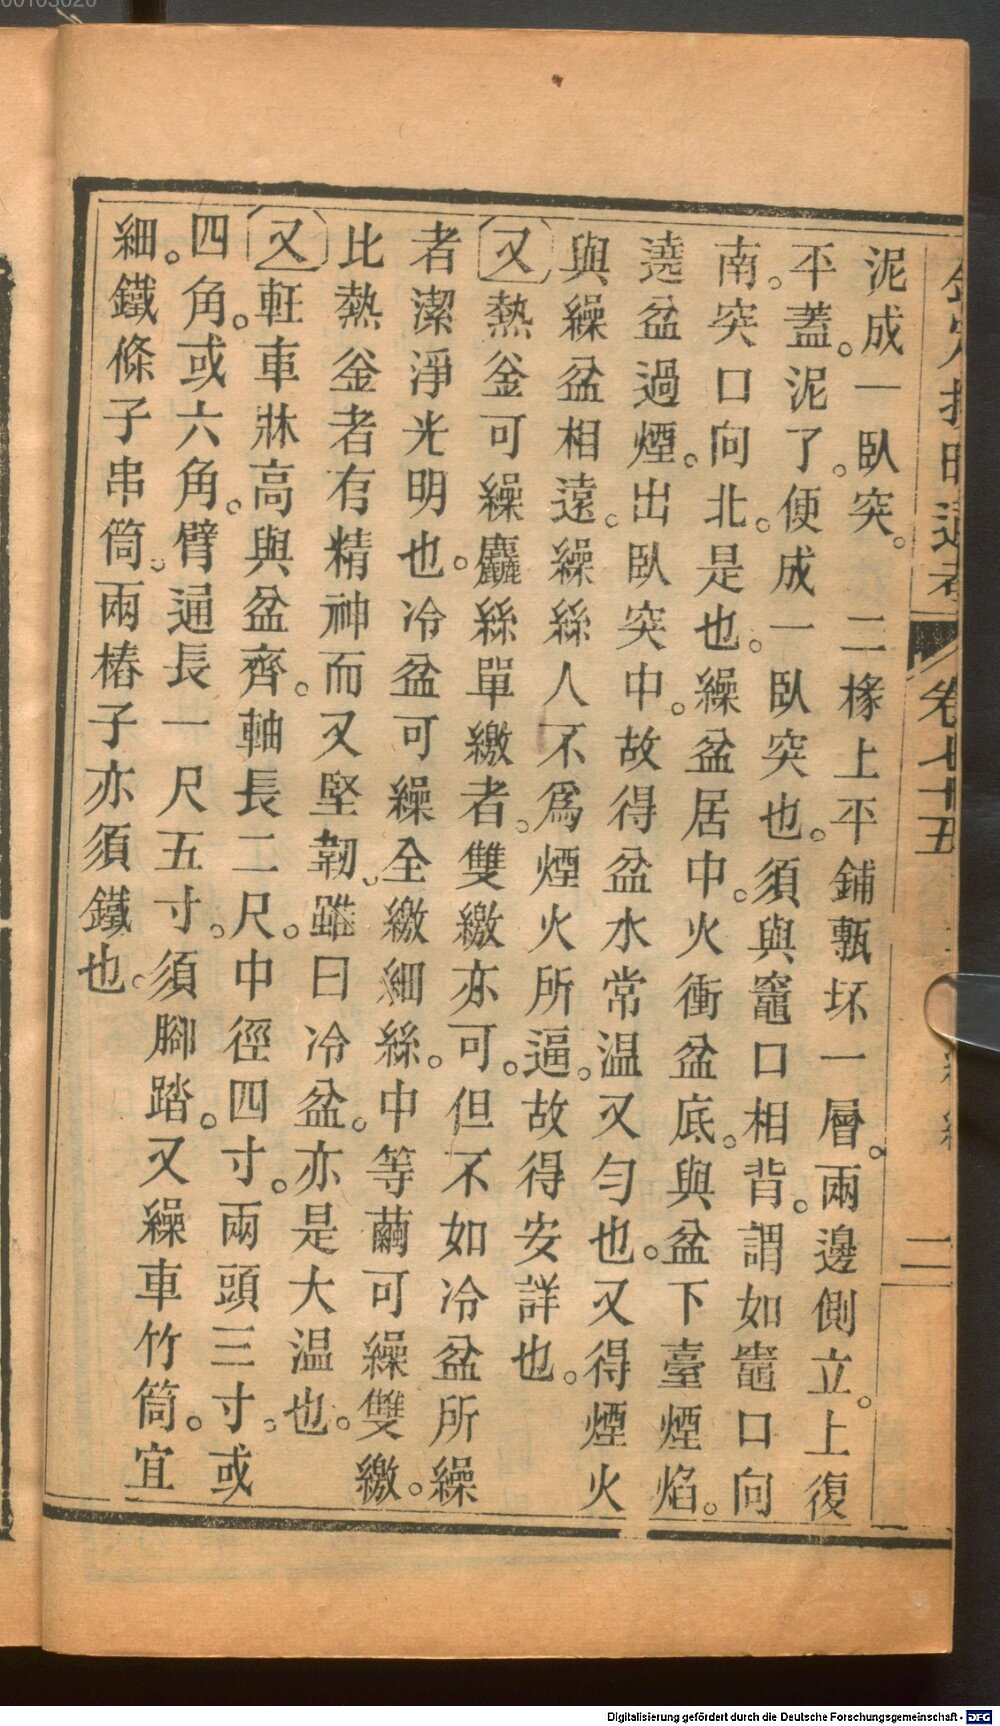 卷七十五
二
泥成一臥突。二椽上平鋪甎坯一層。兩邊側立。上復
平蓋。泥了。便成一臥突也。須與竈口相背。謂如竈口向
南。突口向北。是也。繰盆居中。火衝盆底。與盆下臺煙焰。
遶盆過煙。出臥突中。故得盆水常温又勻也。又得煙火
與繰盆相遠。繰絲人不爲煙火所逼。故得安詳也。
又熱釜可繰麤絲單繳者。雙繳亦可。但不如冷盆所繰
者潔淨光明也。冷盆可繰全繳細絲。中等繭可繰雙繳。
比熱釜者有精神而又堅韌。雖曰冷盆。亦是大温也。
又軖車牀高與盆齊。軸長二尺。中徑四寸。兩頭三寸。或
四角。或六角。臂通長一尺五寸。須腳踏。又繰車竹筒。宜
細。鐵條子串筒。兩樁子亦須鐵也。
Digitalisierung gefördert durch die Deutsche Forschungsgemeinschaft - DFG